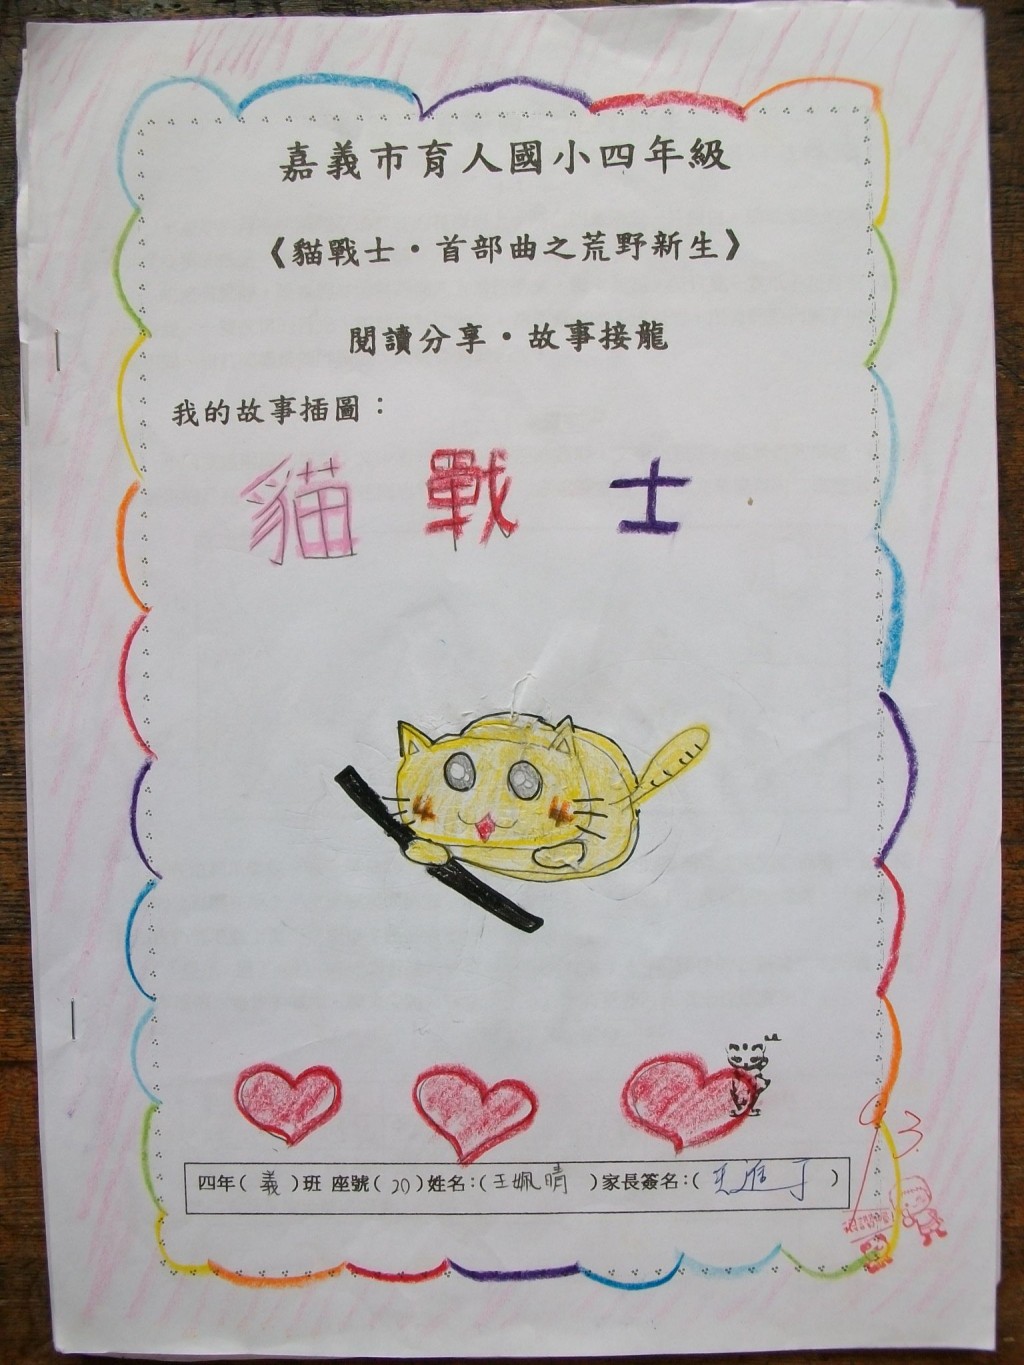 嘉義市育人國小四年級
《貓戰士・首部曲之荒野新生》
閱讀分享・故事接龍
我的故事插圖：
貓戰士
93
四年(義)班 座號(20)姓名：(王姵晴)家長簽名：(王進丁)